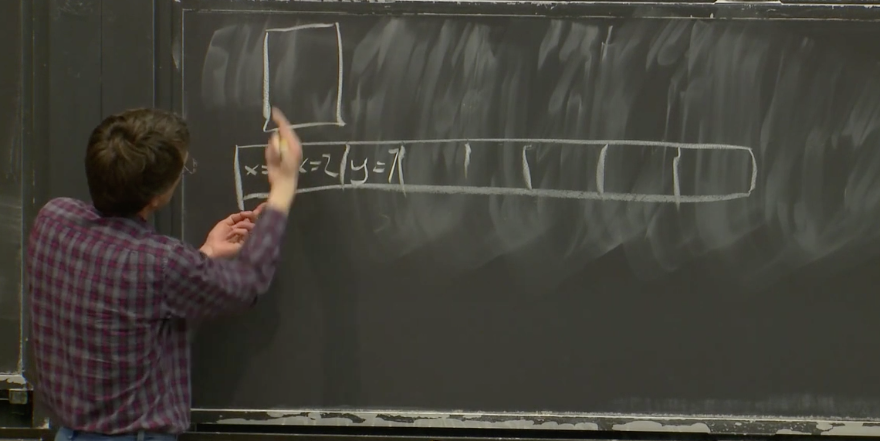 x= x=2 y=7